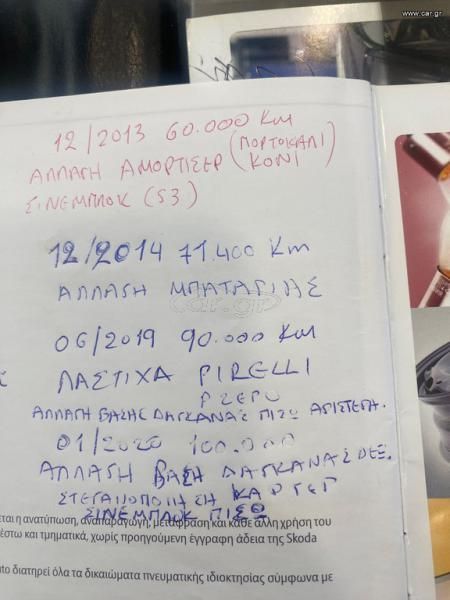 www.car.gr
12/2013 60.000 Km
ΑΛΛΑΓΗ ΑΜΟΡΤΙΣΕΡ (ΠΟΡΤΟΚΑΛΙ
ΚΟΝΙ)
ΣΙΝΕΜΠΛΟΚ (S3)
12/2014 71.400 Km
ΑΛΛΑΓΗ ΜΠΑΤΑΡΙΑΣ
car.gr
06/2019 90.000 Km
ΛΑΣΤΙΧΑ PIRELLI
PZERO
ΑΛΛΑΓΗ ΒΑΣΗΣ ΔΑΓΚΑΝΑΣ ΠΙΣΩ ΑΡΙΣΤΕΡΑ.
01/2020 100.000
ΑΛΛΑΓΗ ΒΑΣΗ ΔΑΓΚΑΝΑΣ ΔΕΞ.
ΣΤΕΓΑΝΟΠΟΙΗΣΗ ΚΑΡΤΕΡ
ΣΙΝΕΜΠΛΟΚ ΠΙΣΩ
εται η ανατύπωση, αναπαραγωγή, μετάφραση και κάθε άλλη χρήση του
έστω και τμηματικά, χωρίς προηγούμενη έγγραφη άδεια της Skoda
uto διατηρεί όλα τα δικαιώματα πνευματικής ιδιοκτησίας σύμφωνα με